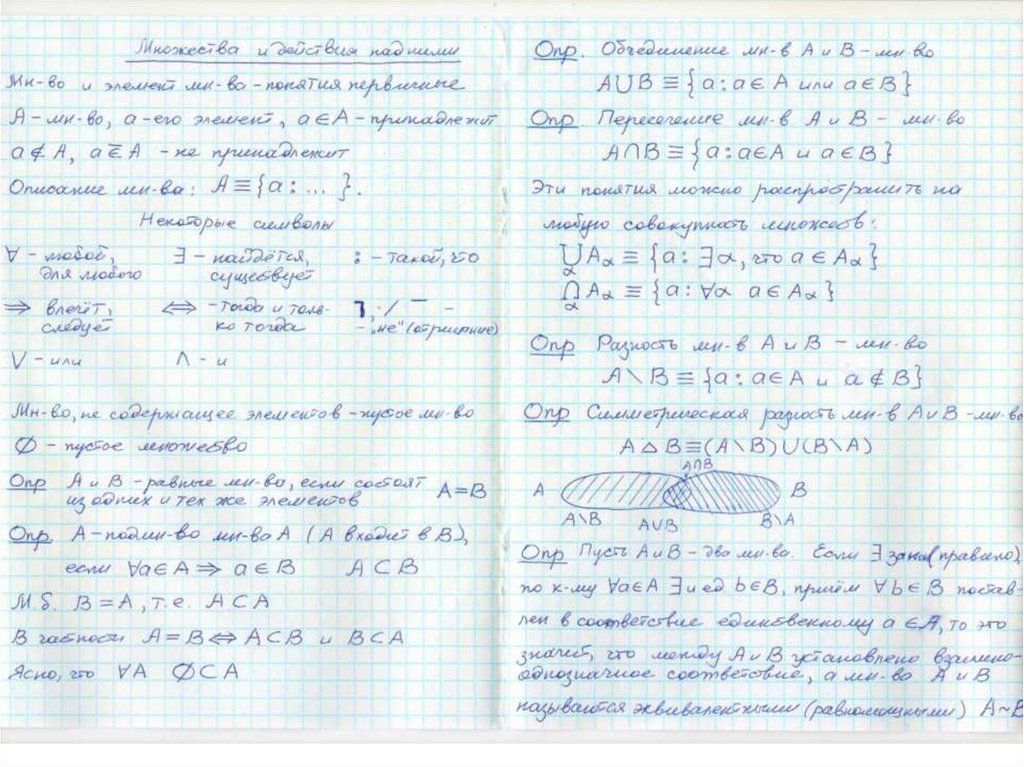 Множества и действия над ними
Мн-во и элемент мн-ва - понятия первичные
A - мн-во, a - его элемент, a ∈ A - принадлежит
a ∉ A, a ∈̅ A - не принадлежит
Описание мн-ва: A ≡ {a : ... }.
Некоторые символы
∀ - любой, ∃ - найдётся, : - такой, что
для любого существует
⇒ влечёт, ⇔ - тогда и толь- ˥, ·/ ¯ -
следует ко тогда - „не" (отрицание)
∨ - или ∧ - и
Мн-во, не содержащее элементов - пустое мн-во
∅ - пустое множество
Опр A и B - равные мн-ва, если состоят
из одних и тех же элементов A = B
Опр. A - подмн-во мн-ва A (A входит в B),
если ∀a ∈ A ⇒ a ∈ B A ⊂ B
М.б. B = A, т.е. A ⊂ A
В частности A = B ⇔ A ⊂ B и B ⊂ A
Ясно, что ∀A ∅ ⊂ A
Опр. Объединение мн-в A и B - мн-во
A ∪ B ≡ {a : a ∈ A или a ∈ B}
Опр Пересечение мн-в A и B - мн-во
A ∩ B ≡ {a : a ∈ A и a ∈ B}
Эти понятия можно распространить на
любую совокупность множеств:
⋃α Aα ≡ {a : ∃α, что a ∈ Aα}
⋂α Aα ≡ {a : ∀α a ∈ Aα}
Опр Разность мн-в A и B - мн-во
A \ B ≡ {a : a ∈ A и a ∉ B}
Опр Симметрическая разность мн-в A и B - мн-во
A △ B ≡ (A \ B) ∪ (B \ A)
A∩B
A B
A\B A∪B B\A
Опр Пусть A и B - два мн-ва. Если ∃ закон (правило),
по к-му ∀a∈A ∃ и ед b∈B, причём ∀b∈B постав-
лен в соответствие единственному a ∈ A, то это
значит, что между A и B установлено взаимно-
однозначное соответствие, а мн-ва A и B
называются эквивалентными (равномощными) A ~ B